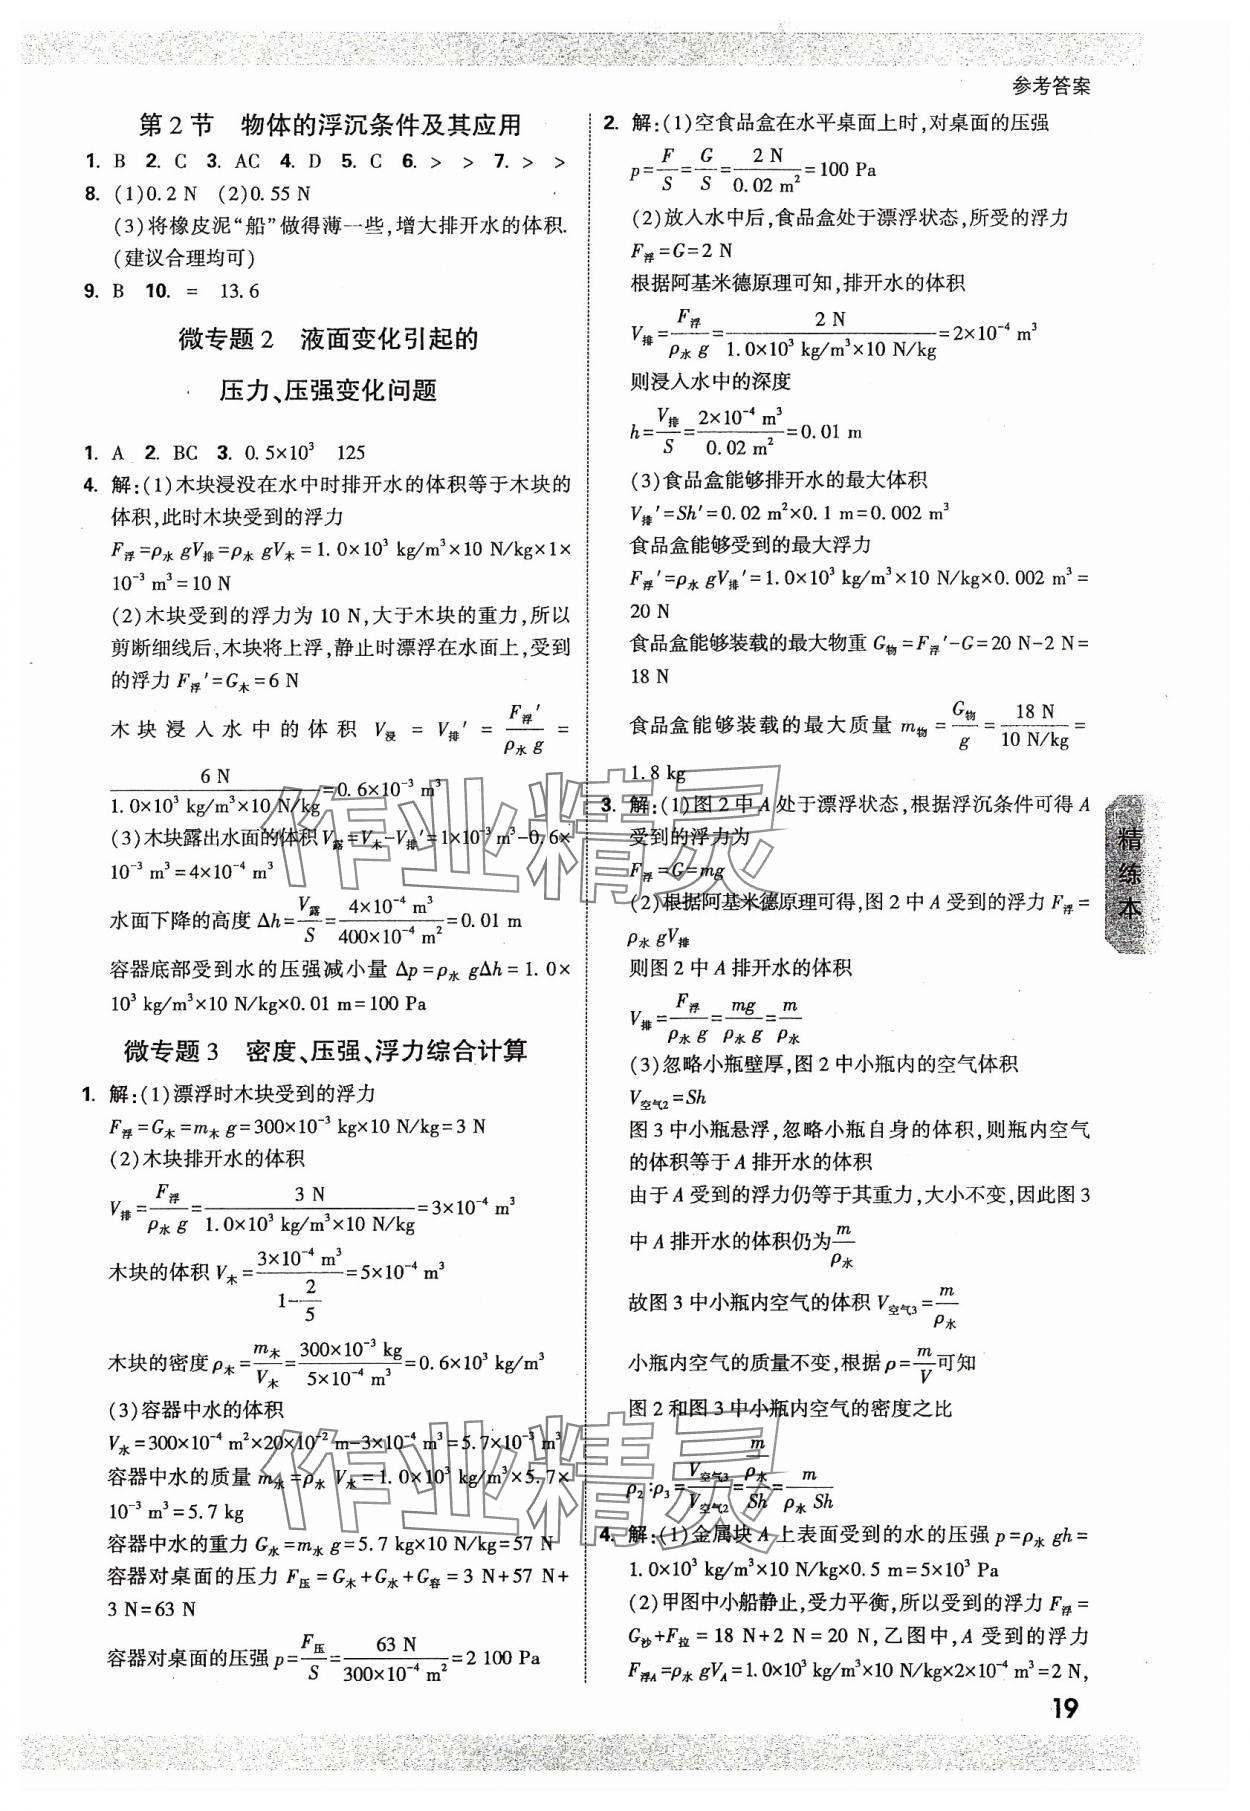 参考答案
第2节 物体的浮沉条件及其应用
1. B 2. C 3. AC 4. D 5. C 6. > > 7. > >
8. (1)0.2 N (2)0.55 N
(3)将橡皮泥“船”做得薄一些,增大排开水的体积.
(建议合理均可)
9. B 10. = 13.6
微专题2 液面变化引起的
压力、压强变化问题
1. A 2. BC 3. 0.5×10³ 125
4. 解:(1)木块浸没在水中时排开水的体积等于木块的
体积,此时木块受到的浮力
F浮=ρ水 gV排=ρ水 gV木=1.0×10³ kg/m³×10 N/kg×1×
10⁻³ m³=10 N
(2)木块受到的浮力为 10 N,大于木块的重力,所以
剪断细线后,木块将上浮,静止时漂浮在水面上,受到
的浮力 F浮′=G木=6 N
木块浸入水中的体积 V浸 = V排′ = F浮′/(ρ水 g) =
6 N/(1.0×10³ kg/m³×10 N/kg)=0.6×10⁻³ m³
(3)木块露出水面的体积V露=V木-V排′=1×10⁻³ m³-0.6×
10⁻³ m³=4×10⁻⁴ m³
水面下降的高度 Δh=V露/S=(4×10⁻⁴ m³)/(400×10⁻⁴ m²)=0.01 m
容器底部受到水的压强减小量 Δp=ρ水 gΔh=1.0×
10³ kg/m³×10 N/kg×0.01 m=100 Pa
微专题3 密度、压强、浮力综合计算
1. 解:(1)漂浮时木块受到的浮力
F浮=G木=m木 g=300×10⁻³ kg×10 N/kg=3 N
(2)木块排开水的体积
V排=F浮/(ρ水 g)=3 N/(1.0×10³ kg/m³×10 N/kg)=3×10⁻⁴ m³
木块的体积 V木=(3×10⁻⁴ m³)/(1-2/5)=5×10⁻⁴ m³
木块的密度 ρ木=m木/V木=(300×10⁻³ kg)/(5×10⁻⁴ m³)=0.6×10³ kg/m³
(3)容器中水的体积
V水=300×10⁻⁴ m²×20×10⁻² m-3×10⁻⁴ m³=5.7×10⁻³ m³
容器中水的质量 m水=ρ水 V水=1.0×10³ kg/m³×5.7×
10⁻³ m³=5.7 kg
容器中水的重力 G水=m水 g=5.7 kg×10 N/kg=57 N
容器对桌面的压力 F压=G木+G水+G容=3 N+57 N+
3 N=63 N
容器对桌面的压强 p=F压/S=63 N/(300×10⁻⁴ m²)=2 100 Pa
2. 解:(1)空食品盒在水平桌面上时,对桌面的压强
p=F/S=G/S=2 N/0.02 m²=100 Pa
(2)放入水中后,食品盒处于漂浮状态,所受的浮力
F浮=G=2 N
根据阿基米德原理可知,排开水的体积
V排=F浮/(ρ水 g)=2 N/(1.0×10³ kg/m³×10 N/kg)=2×10⁻⁴ m³
则浸入水中的深度
h=V排/S=(2×10⁻⁴ m³)/(0.02 m²)=0.01 m
(3)食品盒能够排开水的最大体积
V排′=Sh′=0.02 m²×0.1 m=0.002 m³
食品盒能够受到的最大浮力
F浮′=ρ水 gV排′=1.0×10³ kg/m³×10 N/kg×0.002 m³=
20 N
食品盒能够装载的最大物重 G物=F浮′-G=20 N-2 N=
18 N
食品盒能够装载的最大质量 m物=G物/g=18 N/(10 N/kg)=
1.8 kg
3. 解:(1)图2中A处于漂浮状态,根据浮沉条件可得A
受到的浮力为
F浮=G=mg
(2)根据阿基米德原理可得,图2中A受到的浮力 F浮=
ρ水 gV排
则图2中A排开水的体积
V排=F浮/(ρ水 g)=mg/(ρ水 g)=m/ρ水
(3)忽略小瓶壁厚,图2中小瓶内的空气体积
V空气2=Sh
图3中小瓶悬浮,忽略小瓶自身的体积,则瓶内空气
的体积等于A排开水的体积
由于A受到的浮力仍等于其重力,大小不变,因此图3
中A排开水的体积仍为m/ρ水
故图3中小瓶内空气的体积 V空气3=m/ρ水
小瓶内空气的质量不变,根据ρ=m/V可知
图2和图3中小瓶内空气的密度之比
ρ2∶ρ3=V空气3/V空气2=(m/ρ水)/Sh=m/(ρ水 Sh)
4. 解:(1)金属块A上表面受到的水的压强 p=ρ水 gh=
1.0×10³ kg/m³×10 N/kg×0.5 m=5×10³ Pa
(2)甲图中小船静止,受力平衡,所以受到的浮力 F浮=
G沙+F拉=18 N+2 N=20 N,乙图中,A受到的浮力
F浮A=ρ水 gVA=1.0×10³ kg/m³×10 N/kg×2×10⁻⁴ m³=2 N,
精练本
作业精灵
作业精灵
19